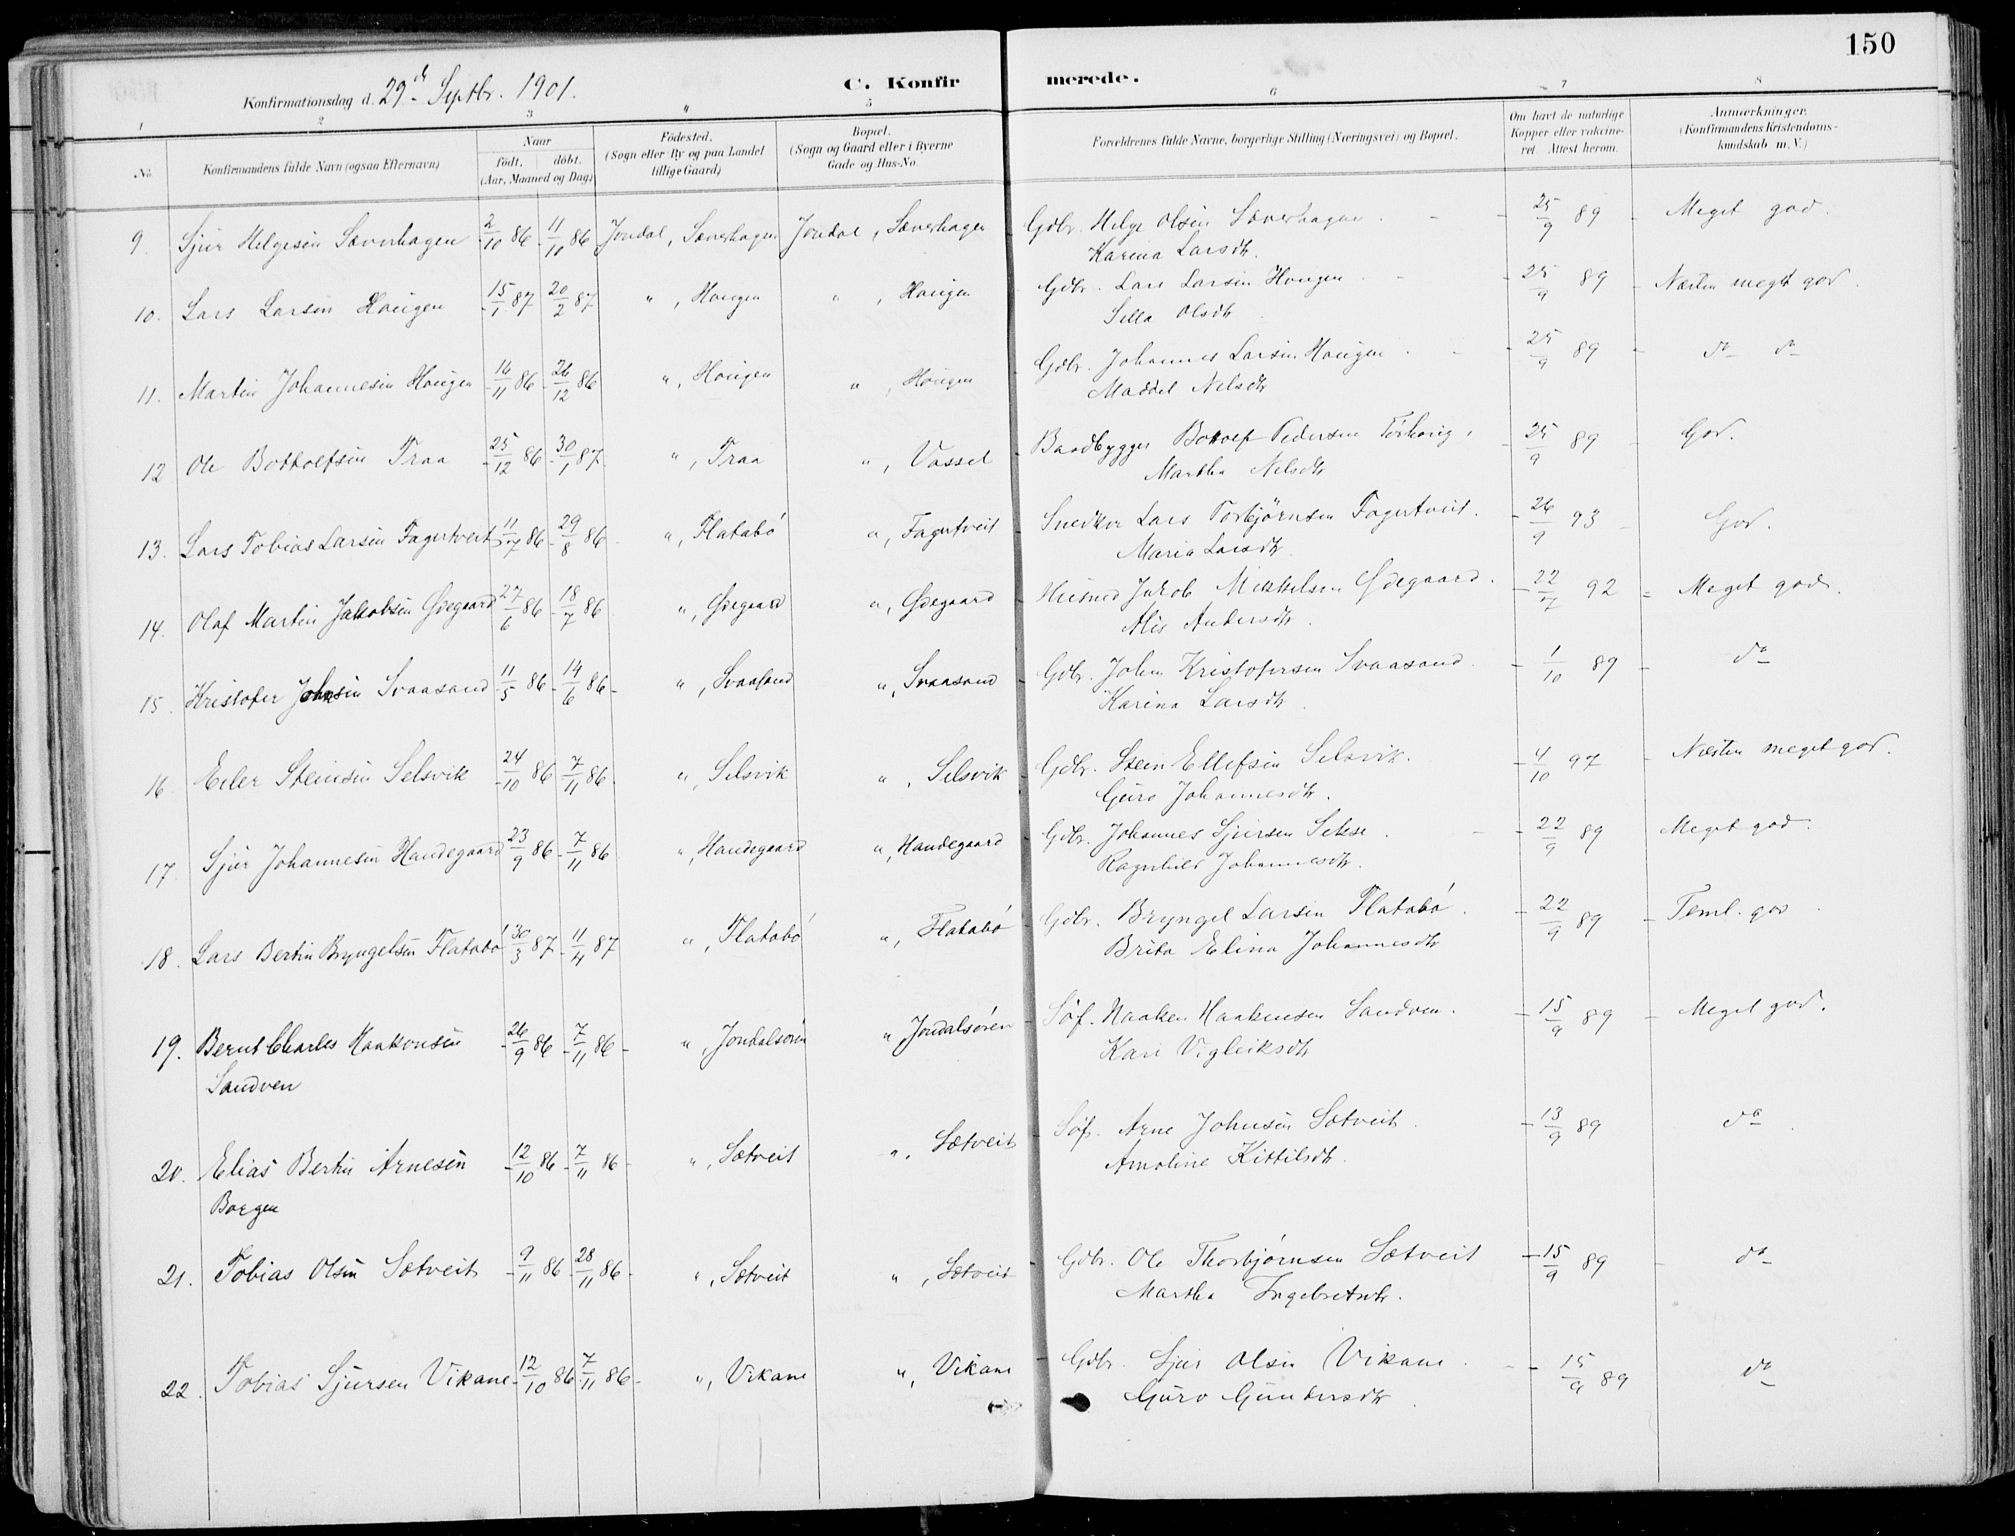 150
Konfirmationsdag d. 29de Septbr. 1901. C. Konfirmerede.
1 2 3 4 5 6 7 8
No. Konfirmandens fulde Navn (ogsaa Efternavn) Naar født, døbt. (Aar, Maaned og Dag.) Fødested. (Sogn eller By og paa Landet tillige Gaard) Bopæl. (Sogn og Gaard eller i Byerne Gade og Hus-No. Forældrenes fulde Navne, borgerlige Stilling (Næringsvei) og Bopæl. Om havt de naturlige Kopper eller vakcineret. Attest herom. Anmærkninger. (Konfirmandens Kristendomskundskab m. V.)
9. Sjur Helgesen Sæverhagen 2/10 86 11/11 86 Jondal, Sæverhagen Jondal, Sæverhagen Gdbr. Helge Olsen Sæverhagen. 25/9 89 Meget god.
Karina Larsdtr.
10. Lars Larsen Hougen 15/1 87 20/2 87 ", Hougen ", Hougen Gdbr. Lars Larsen Hougen 25/9 89 Næsten meget god.
Silla Olsdtr.
11. Martin Johannesen Hougen 16/11 86 26/12 86 ", Hougen ", Hougen Gdbr. Johannes Larsen Hougen. 25/9 89 do do
Maddel Nelsdtr
12 Ole Bottolfsen Traa 25/12 86 30/1 87 ", Traa ", Vassel Baadbygger Bottolf Pedersen Torhoug, 25/9 89 God.
Martha Nelsdtr
13. Lars Tobias Larsen Fagertveit 11/7 86 29/8 86 ", Flatabø ", Fagertveit Snedker Lars Torbjørnsen Fagertveit. 26/9 93 God.
Maria Larsdtr.
14. Olaf Martin Jakobsen Ødegaard 27/6 86 18/7 86 ", Ødegaard ", Ødegaard Husmd Jakob Mikkelsen Ødegaard. 22/7 92 Meget god.
Alis Andersdtr.
15. Kristofer Johnsen Svaasand 11/5 86 14/6 86 ", Svaasand ", Svaasand Gdbr. John Kristofersen Svaasand. 1/10 89 do
Karina Larsdtr.
16. Eiler Steinsen Selsvik 24/10 86 7/11 86 ", Selsvik ", Selsvik Gdbr. Stein Ellefsen Selsvik. 4/10 97 Næsten meget god.
Guro Johannesdtr.
17. Sjur Johannesen Handegaard 23/9 86 7/11 86 ", Handegaard ", Handegaard Gdbr. Johannes Sjursen Sekse. 22/9 89 Meget god.
Ragnhild Johannesdtr.
18. Lars Bertin Bryngelsen Flatabø 30/3 87 11/4 87 ", Flatabø ", Flatabø Gdbr. Bryngel Larsen Flatabø. 22/9 89 Teml. god
Brita Elina Johannesdtr
19. Bernt Charles Haakonsen 26/9 86 7/11 86 ", Jondalsøren ", Jondalsøren Søf. Haaken Haakensen Sandven. 15/9 89 Meget god.
Sandven Kari Vigleiksdtr
20. Elias Bertin Arnesen 12/10 86 7/11 86 ", Sætveit ", Sætveit Søf. Arne Johnsen Sætveit. 13/9 89 do
Borgen Amoline Kittilsdtr.
21. Tobias Olsen Sætveit 9/11 86 28/11 86 ", Sætveit ", Sætveit Gdbr. Ole Thorbjørnsen Sætveit 15/9 89 do
Martha Ingebretsdtr.
22. Tobias Sjursen Vikane 12/10 86 7/11 86 ", Vikane ", Vikane Gdbr. Sjur Olsen Vikane. 15/9 89 do
Guro Gundersdtr